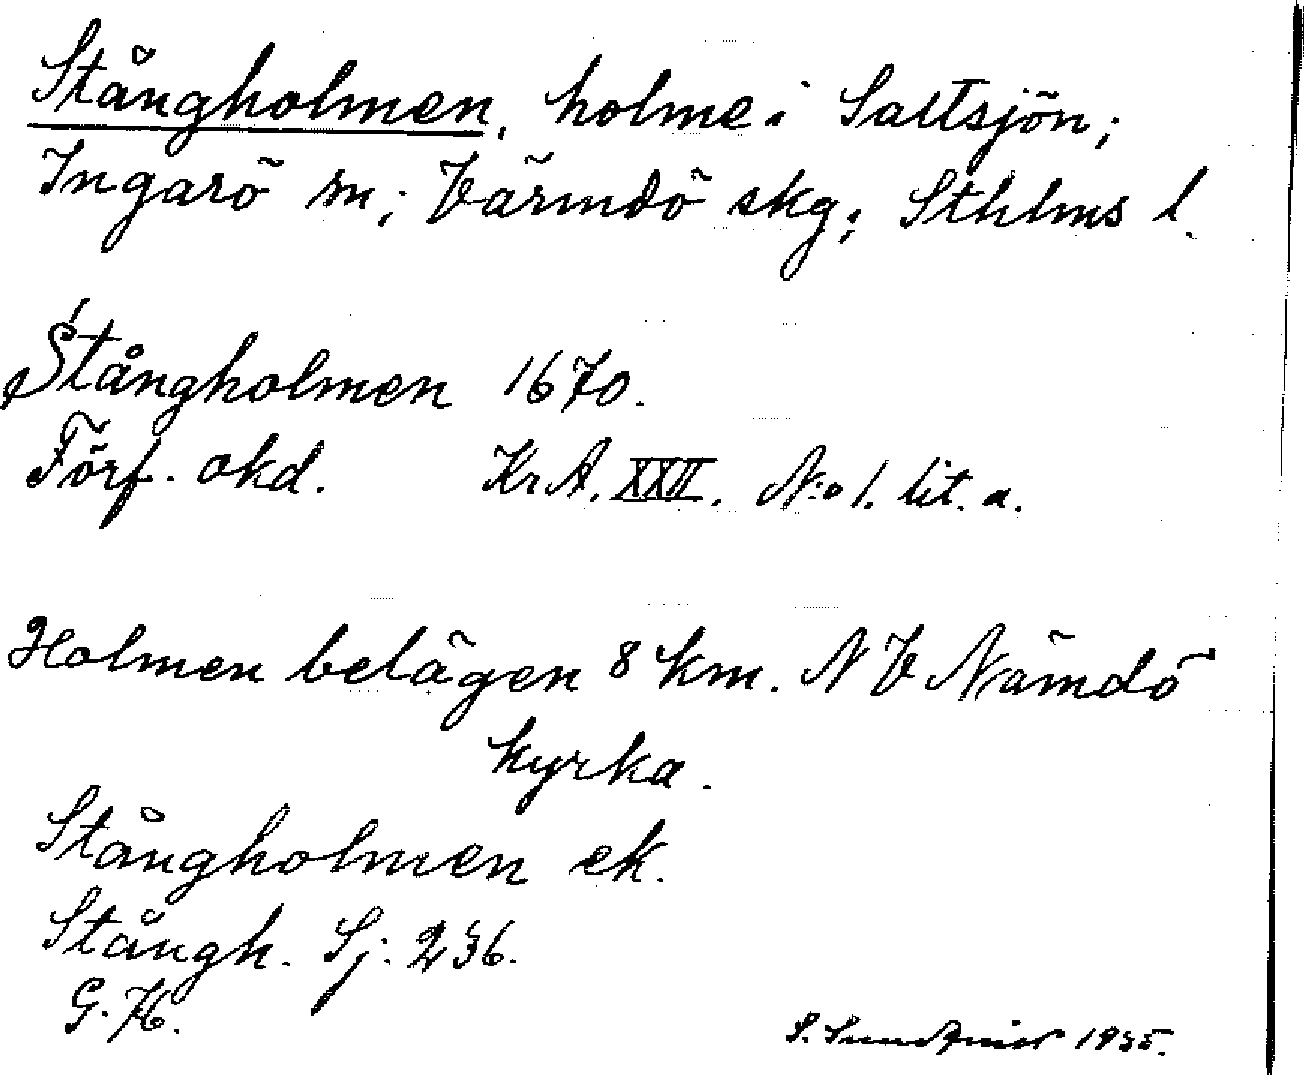 Stångholmen, holme i Saltsjön;
Ingarö sn; Värmdö skg; Sthlms l.
Stångholmen 1670.
Förf. okd. KrA. XXII. N:o 1. lit. a.
Holmen belägen 8 km. NV Nämdö
kyrka.
Stångholmen ek.
Stångh. Sj: 236.
G. 76.
S. 1935.